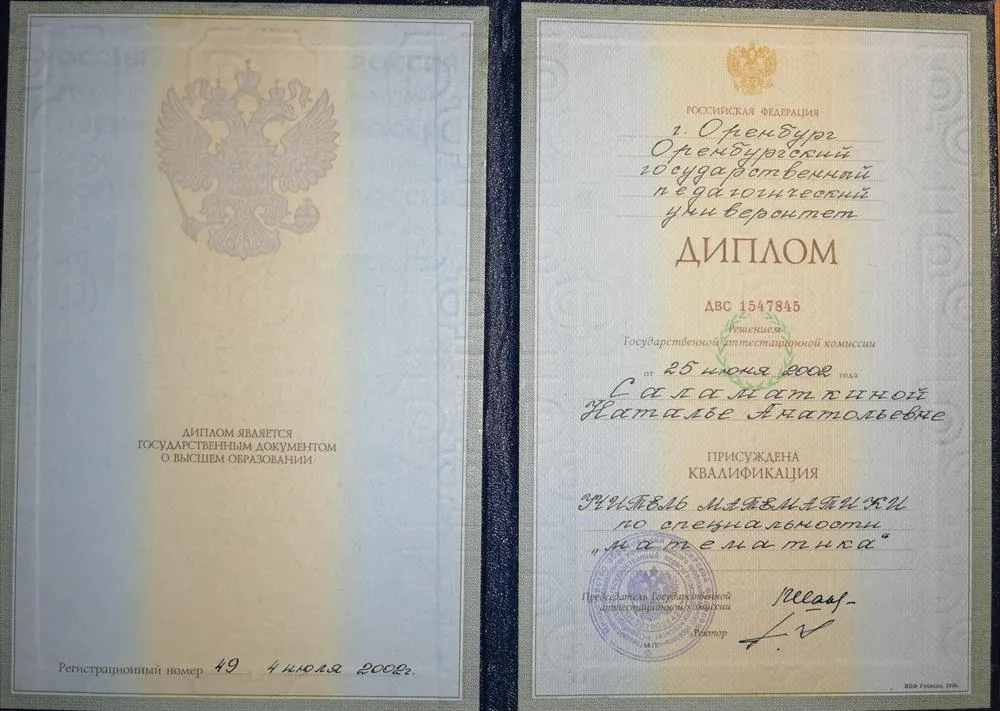 ДИПЛОМ ЯВЛЯЕТСЯ
ГОСУДАРСТВЕННЫМ ДОКУМЕНТОМ
О ВЫСШЕМ ОБРАЗОВАНИИ
Регистрационный номер 49 4 июля 2002г.
РОССИЙСКАЯ ФЕДЕРАЦИЯ
г. Оренбург
Оренбургский
государственный
педагогический
университет
ДИПЛОМ
ДВС 1547845
Решением
Государственной аттестационной комиссии
от 25 июня 2002 года
Саламаткиной
Наталье Анатольевне
ПРИСУЖДЕНА
КВАЛИФИКАЦИЯ
УЧИТЕЛЬ МАТЕМАТИКИ
по специальности
„математика“
Председатель Государственной
аттестационной комиссии
Ректор
М.П.